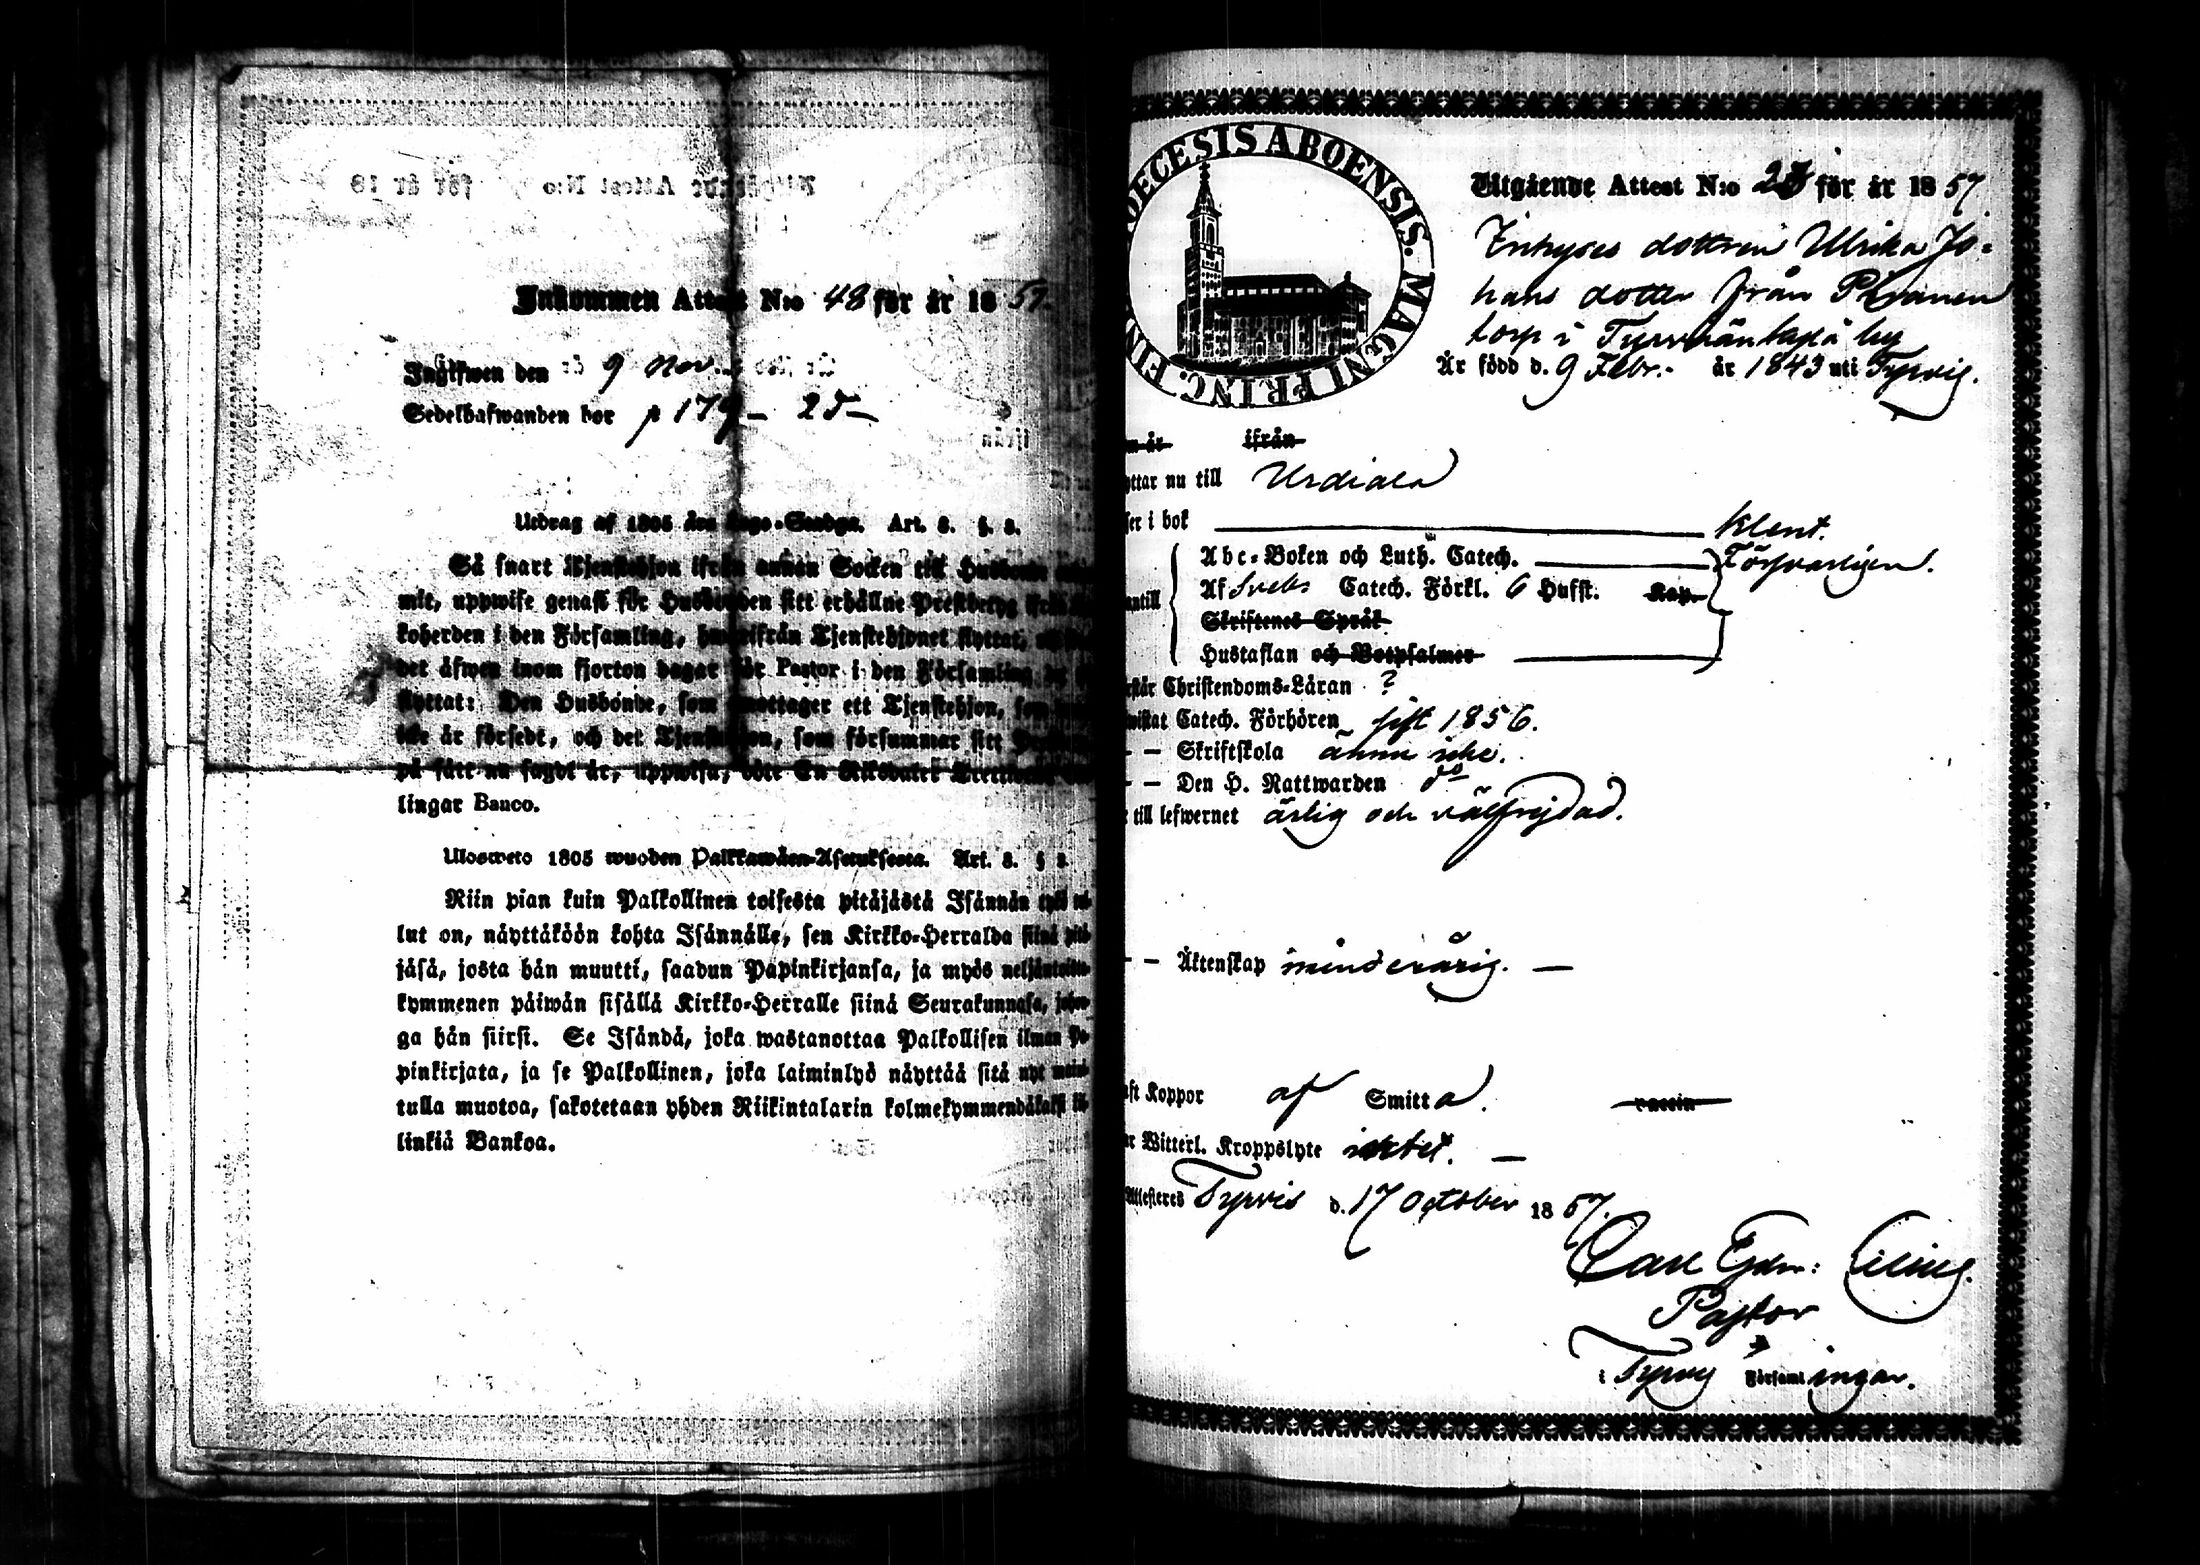 Inkommen Attest N:o 48 för år 1857.
Ingifwen den 9 Nov.
Sedelhafwanden bor p 179 – 25 –
Utdrag af 1805 års Lego-Stadga. Art. 8. §. 3.
Så snart Tjenstehjon ifrån annan Socken till Husbonde
mit, uppwise genast för Husbonden sitt erhållne Prestbetyg ifrån
koherden i den Församling, hwarifrån Tjenstehjonet flyttat,
det äfwen inom fjorton dagar för Pastor i den Församling
flyttat: Den Husbonde, som emottager ett Tjenstehjon, som
icke är försedt, och det Tjenstehjon, som försummar sitt
på sätt nu sagdt är, uppwisa, böte En Riksdaler Trettio
lingar Banco.
Ulosweto 1805 wuoden Palkkawäen-Asetuksesta. Art. 8. §
Niin pian kuin Palkollinen toisesta pitäjästä Isännän työ
lut on, näyttäköön kohta Isännälle, sen Kirkko-Herralda siinä pitä
jäsä, josta hän muutti, saadun Papinkirjansa, ja myös neljäntoista
kymmenen päiwän sisällä Kirkko-Herralle siinä Seurakunnasa, johon
ga hän siirsi. Se Isändä, joka wastanottaa Palkollisen ilman Pa
pinkirjata, ja se Palkollinen, joka laiminlyö näyttää sitä nyt maini
tulla muotoa, sakotetaan yhden Riikintalarin kolmekymmendäkaksi ki
linkiä Bankoa.
DIOECESIS ABOENSIS. MAGNI PRINC. FIN
Utgående Attest N:o för år 1857
Inhyses dottren Ulrika Jo-
hans dotter från
torp i by
Är född d. 9 Febr. år 1843 uti Tyrvis.
n är ifrån
yttar nu till Urdiala
ser i bok klent.
Abc-Boken och Luth. Catech. Försvarligen.
Af Svebs Catech. Förkl. 6 Hufst. Kap.
antill
Skriftenes Språk
Hustaflan och Botpsalmer
rstår Christendoms-Läran ?
wistat Catech. Förhören sist 1856.
– – Skriftskola ännu icke.
– – Den H. Nattwarden do
till lefwernet ärlig och välfrejdad.
– – Äktenskap minderårig. –
aft Koppor af Smitta. vaccin
ar Witterl. Kroppslyte intet. –
Attesteres Tyrvis d. 17 October 1857.
Carl Edv:
Pastor
i Tyrvis Församlingar.